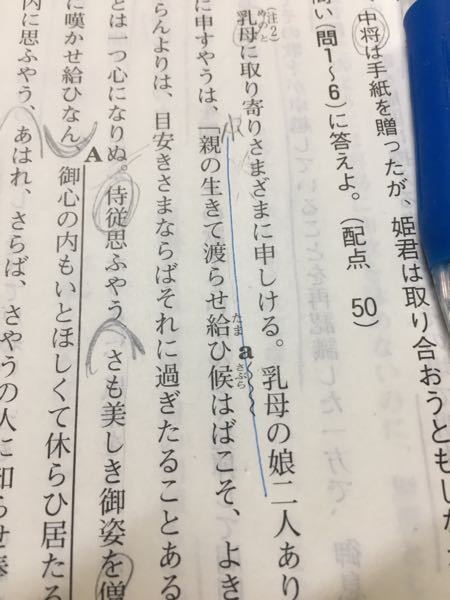 中将は手紙を贈ったが、姫君は取り合おうともしな
問い(問1～6)に答えよ。(配点 50)
(注2)
乳母に取り寄りさまざまに申しける。乳母の娘二人あり
めのと
に申すやうは、「親の生きて渡らせ給ひ候はばこそ、よき
たま
a
さぶら
らんよりは、目安きさまならばそれに過ぎたることある
とは一つ心になりぬ。侍従思ふやう、さも美しき御姿を僧
に嘆かせ給ひなん
A
御心の内もいとほしくて休らひ居たる
内に思ふやう、あはれ、さらば、さやうの人に知らせ奉